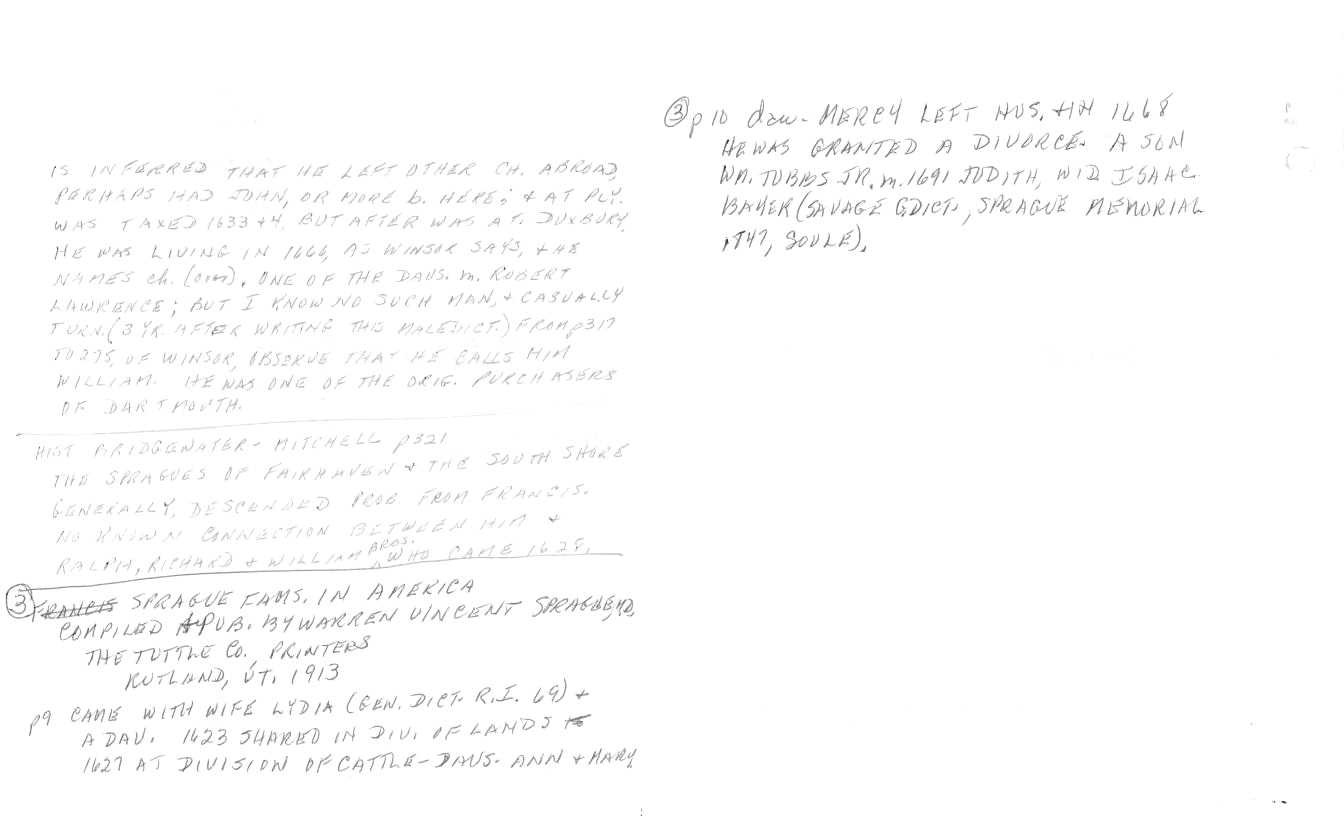 IS INFERRED THAT HE LEFT OTHER CH. ABROAD,
PERHAPS HAD JOHN, OR MORE b. HERE; + AT PLY.
WAS TAXED 1633 + 4, BUT AFTER WAS AT DUXBURY,
HE WAS LIVING IN 1666, AS WINSOR SAYS, + HE
NAMES ch. (om), ONE OF THE DAUS. m. ROBERT
LAWRENCE; BUT I KNOW NO SUCH MAN, + CASUALLY
TURN. (3 YR. AFTER WRITING THIS MALEDICT.) FROM p317
TO 275, OF WINSOR, OBSERVE THAT HE CALLS HIM
WILLIAM. HE WAS ONE OF THE ORIG. PURCHASERS
OF DARTMOUTH.
HIST BRIDGEWATER - MITCHELL p321
THE SPRAGUES OF FAIRHAVEN + THE SOUTH SHORE
GENERALLY, DESCENDED PROB FROM FRANCIS.
NO KNOWN CONNECTION BETWEEN HIM +
RALPH, RICHARD + WILLIAM BROS. WHO CAME 1628,
③ FRANCIS SPRAGUE FAMS. IN AMERICA
COMPILED + PUB. BY WARREN VINCENT SPRAGUE, MD,
THE TUTTLE CO., PRINTERS
RUTLAND, VT. 1913
p9 CAME WITH WIFE LYDIA (GEN. DICT. R.I. 69) +
A DAU. 1623 SHARED IN DIV. OF LANDS
1627 AT DIVISION OF CATTLE - DAUS. ANN + MARY
③ p 10 dau - MERCY LEFT HUS. 1668
HE WAS GRANTED A DIVORCE. A SON
WM. TUBBS JR. m. 1691 JUDITH, WID ISAAC
BAKER (SAVAGE G.DICT., SPRAGUE MEMORIAL
1847, SOULE),